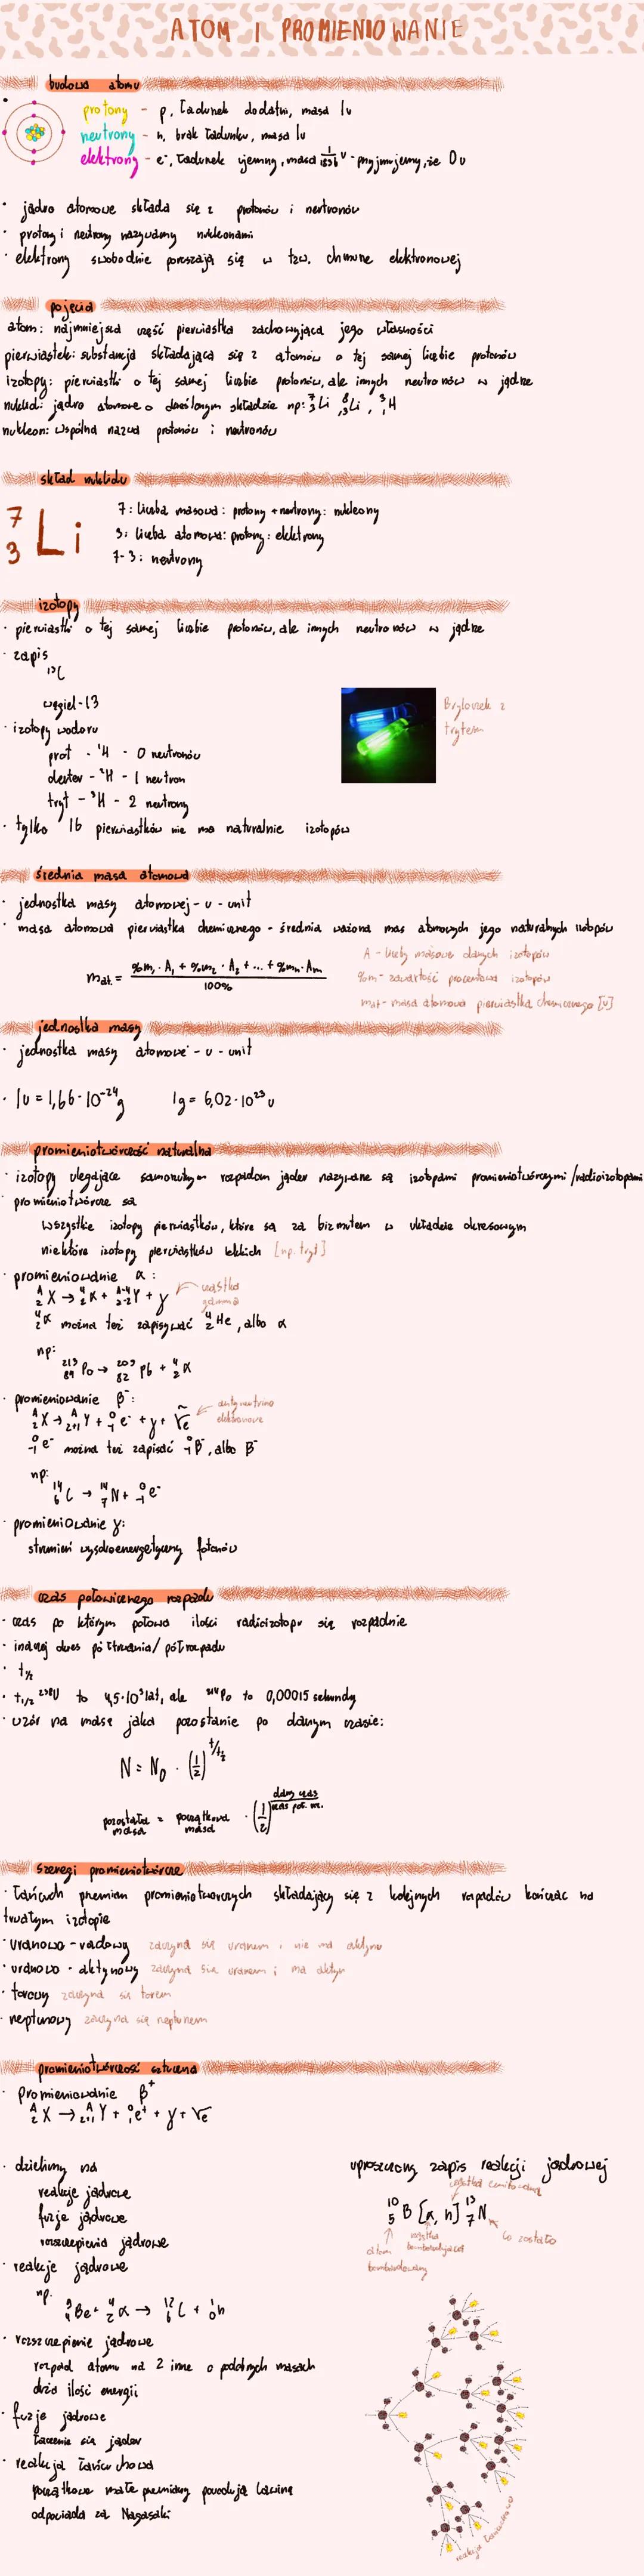 ATOM I PROMIENIOWANIE
budowa atomu
protony - p, ładunek dodatni, masa 1u
neutrony - n, brak ładunku, masa 1u
elektrony - e⁻, ładunek ujemny, masa 1/1836 u - przyjmujemy, że 0u
· jądro atomowe składa się z protonów i neutronów
· protony i neutrony nazywamy nukleonami
· elektrony swobodnie poruszają się w tzw. chmurze elektronowej
pojęcia
atom: najmniejsza część pierwiastka zachowująca jego własności
pierwiastek: substancja składająca się z atomów o tej samej liczbie protonów
izotopy: pierwiastki o tej samej liczbie protonów, ale innych neutronów w jądrze
nuklid: jądro atomowe o określonym składzie np: ⁷₃Li, ⁶₃Li, ³₁H
nukleon: wspólna nazwa protonów i neutronów
skład nuklidu
⁷₃Li
7: liczba masowa: protony + neutrony: nukleony
3: liczba atomowa: protony: elektrony
7-3: neutrony
izotopy
· pierwiastki o tej samej liczbie protonów, ale innych neutronów w jądrze
· zapis
¹³C
węgiel-13
· izotopy wodoru
prot - ¹H - 0 neutronów
deuter - ²H - 1 neutron
tryt - ³H - 2 neutrony
Bryloczek z
trytem
· tylko 16 pierwiastków nie ma naturalnie izotopów
średnia masa atomowa
· jednostka masy atomowej - u - unit
· masa atomowa pierwiastka chemicznego - średnia ważona mas atomowych jego naturalnych izotopów
m at. = (%m₁ · A₁ + %m₂ · A₂ + ... + %mₙ · Aₙ) / 100%
A - liczby masowe danych izotopów
%m - zawartość procentowa izotopów
mat - masa atomowa pierwiastka chemicznego [u]
jednostka masy
· jednostka masy atomowej - u - unit
· 1u = 1,66 · 10⁻²⁴ g 1g = 6,02 · 10²³ u
promieniotwórczość naturalna
· izotopy ulegające samorzutnym rozpadom jąder nazywane są izotopami promieniotwórczymi/radioizotopami
· promieniotwórcze są
wszystkie izotopy pierwiastków, które są za bizmutem w układzie okresowym
niektóre izotopy pierwiastków lekkich [np. tryt]
· promieniowanie α:
ᴬ_Z X → ⁴₂α + ᴬ⁻⁴_Z-2 Y + γ
cząstka
gamma
⁴₂α można też zapisywać ⁴₂He, albo α
np:
²¹³₈₄Po → ²⁰⁹₈₂Pb + ⁴₂α
· promieniowanie β⁻:
ᴬ_Z X → ᴬ_Z+1 Y + ⁰₋₁e⁻ + γ + ṽe
antyneutrino
elektronowe
⁰₋₁e⁻ można też zapisać ⁰₋₁β⁻, albo β⁻
np:
¹⁴₆C → ¹⁴₇N + ⁰₋₁e⁻
· promieniowanie γ:
strumień wysokoenergetyczny fotonów
czas połowicznego rozpadu
· czas po którym połowa ilości radioizotopu się rozpadnie
· inaczej okres półtrwania/półrozpadu
· t½
· t1/2 ²³⁸U to 4,5·10⁹ lat, ale ²¹⁴Po to 0,00015 sekundy
· wzór na masę jaka pozostanie po danym czasie:
N = N₀ · (1/2)^(t/t½)
pozostała masa = początkowa masa · (1/2)^(dany czas / czas poł. roz.)
szeregi promieniotwórcze
· łańcuch przemian promieniotwórczych składający się z kolejnych rozpadów kończąc na
trwałym izotopie
· uranowo - radowy zaczyna się uranem i nie ma aktynu
· uranowo - aktynowy zaczyna się uranem i ma aktyn
· torowy zaczyna się torem
· neptunowy zaczyna się neptunem
promieniotwórczość sztuczna
· promieniowanie β⁺
ᴬ_Z X → ᴬ_Z+1 Y + ⁰₁e⁺ + γ + νe
· dzielimy na
reakcje jądrowe
fuzje jądrowe
rozszczepienia jądrowe
· reakcje jądrowe
np.
⁹₄Be + ⁴₂α → ¹²₆C + ¹₀n
uproszczony zapis reakcji jądrowej
cząstka emitowana
¹⁰₅B [α, n] ¹³₇N
atom
bombardowany
cząstka
bombardująca
co zostało
· rozszczepienie jądrowe
rozpad atomu na 2 inne o podobnych masach
duża ilość energii
· fuzje jądrowe
łączenie się jąder
· reakcja łańcuchowa
początkowo małe przemiany powodują lawinę
odpowiada za Nagasaki
reakcja łańcuchowa